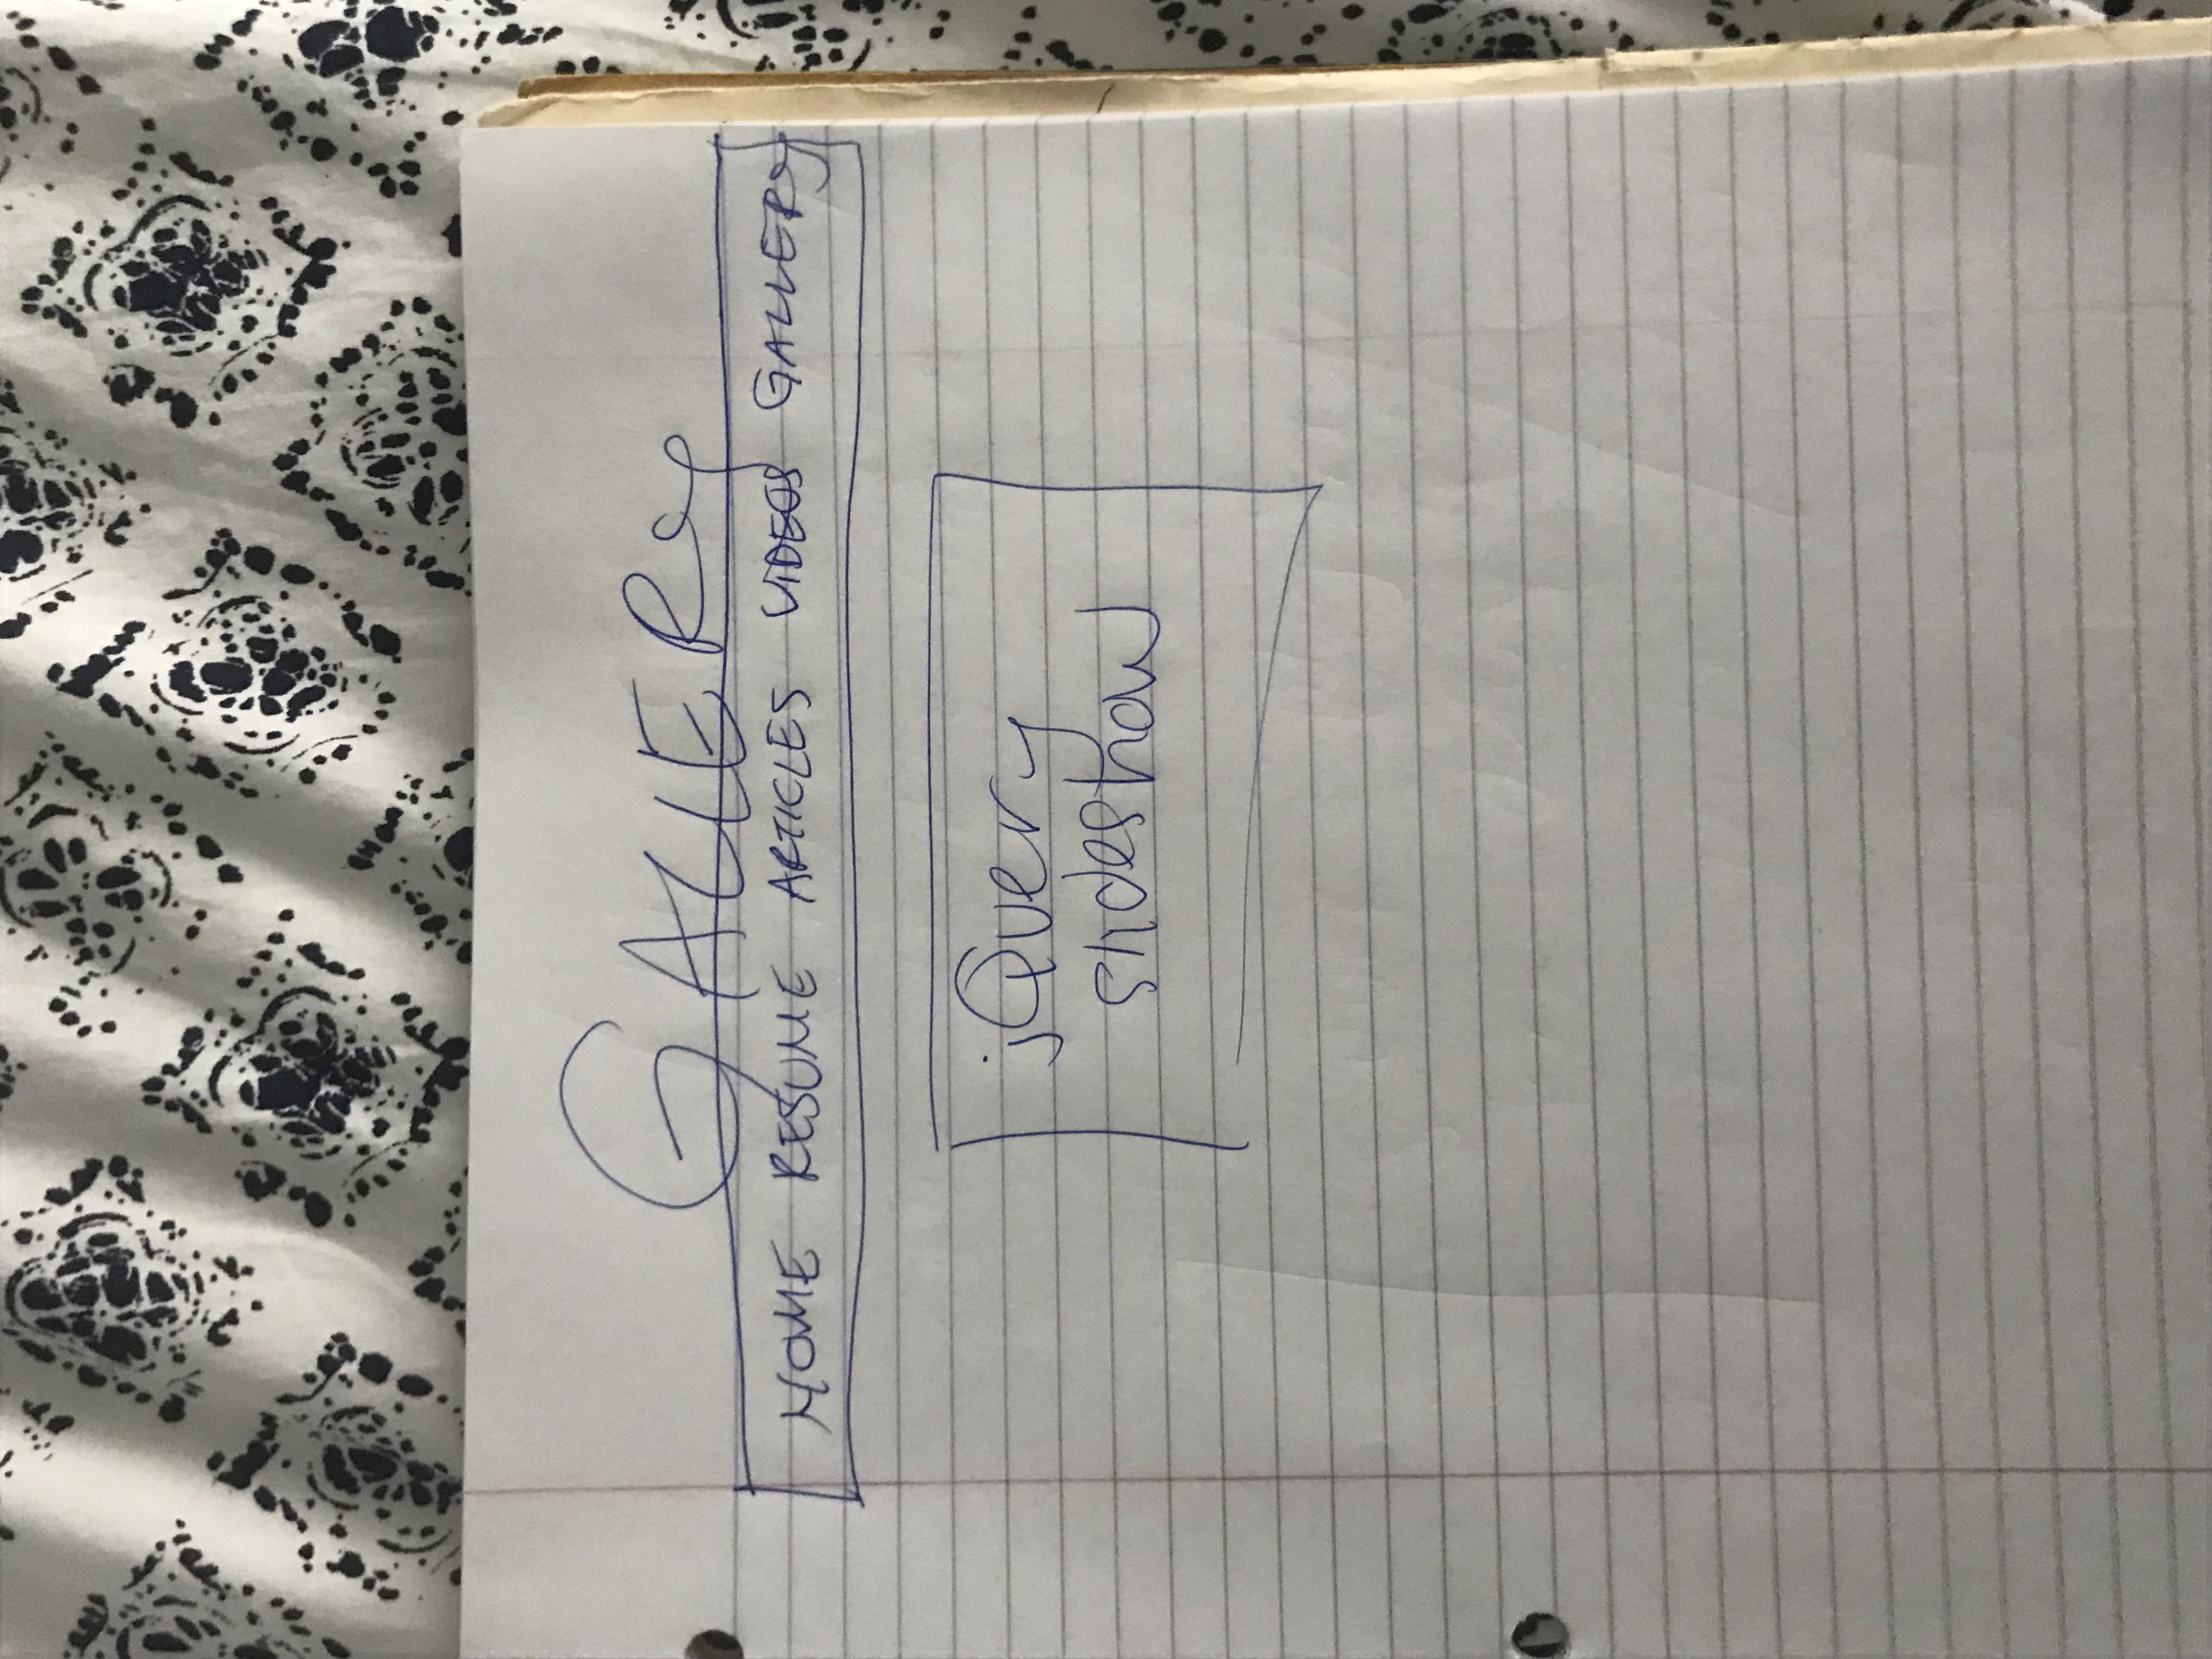 GALLERY
HOME RESUME ARTICLES VIDEOS GALLERY
jQuery
slideshow